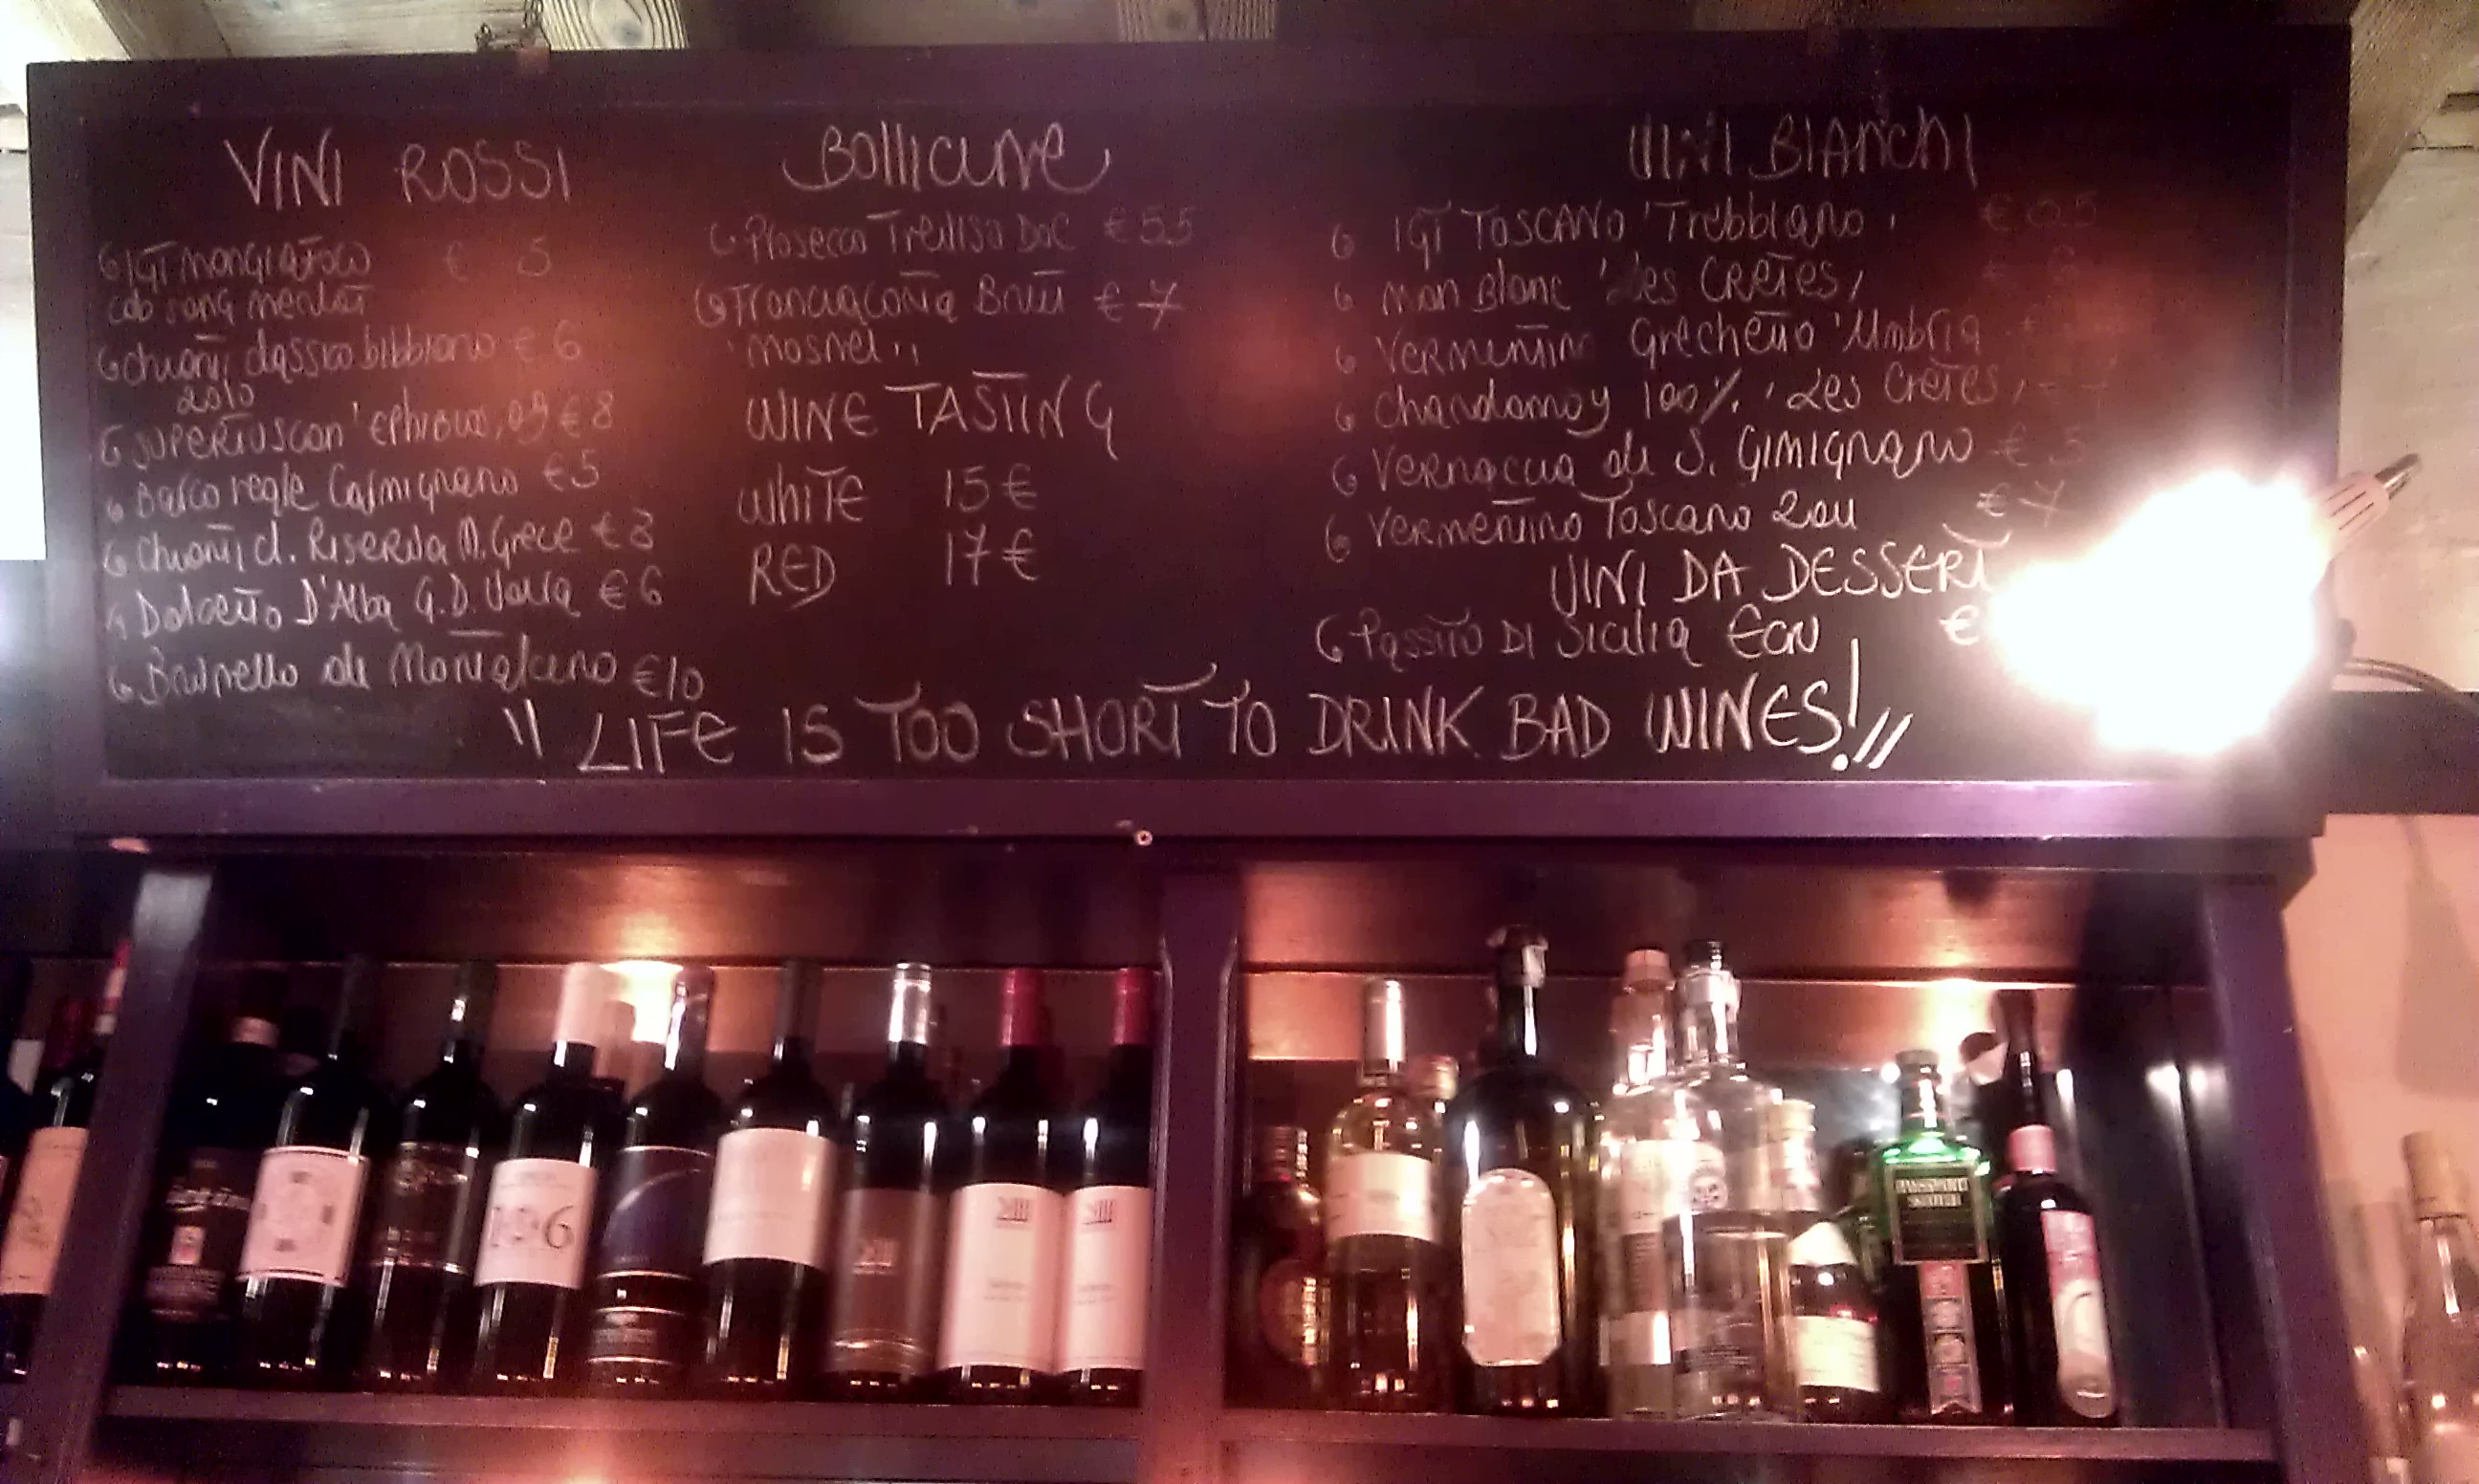 VINI ROSSI
IGT MONGIAFOCO € 5
cab sang merlot
chianti classico bibbiano € 6
2010
SUPERTUSCAN € 8
Barco reale Carmignano € 5
Chianti cl. Riserva M. Grece € 8
Dolcetto D'Alba G.D. Vajra € 6
Brunello di Montalcino €10
Bollicine
Prosecco Treviso DOC € 55
Franciacorta Brut € 7
"mosnel"
WINE TASTING
WHITE 15 €
RED 17 €
VINI BIANCHI
IGT TOSCANO 'Trebbiano'
Mon Blanc 'Les CRETES'
Vermentin Grechetto 'Umbria
Chardonnay 100% 'Les Cretes'
Vernaccia di S. GIMIGNANO € 5
Vermentino Toscano 2011 € 7
VINI DA DESSERT
Passito DI Sicilia €
" LIFE IS TOO SHORT TO DRINK BAD WINES! "